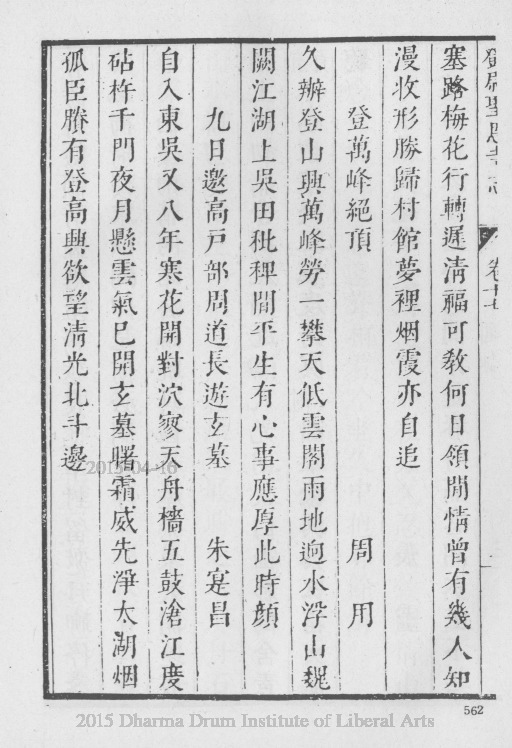 鄧尉聖恩寺志 卷十七
塞路梅花行轉遲清福可教何日領閒情曾有幾人知
漫收形勝歸村館夢裡烟霞亦自追
登萬峰絕頂 周用
久辦登山興萬峰勞一攀天低雲閣雨地迥水浮山魏
闕江湖上吳田秕稗間平生有心事應厚此時顏
九日邀高戸部周道長遊玄墓 朱寔昌
自入東吳又八年寒花開對泬寥天舟檣五鼓滄江度
砧杵千門夜月懸雲氣已開玄墓曙霜威先淨太湖烟
孤臣賸有登高興欲望清光北斗邊
2015-04-16
562
2015 Dharma Drum Institute of Liberal Arts